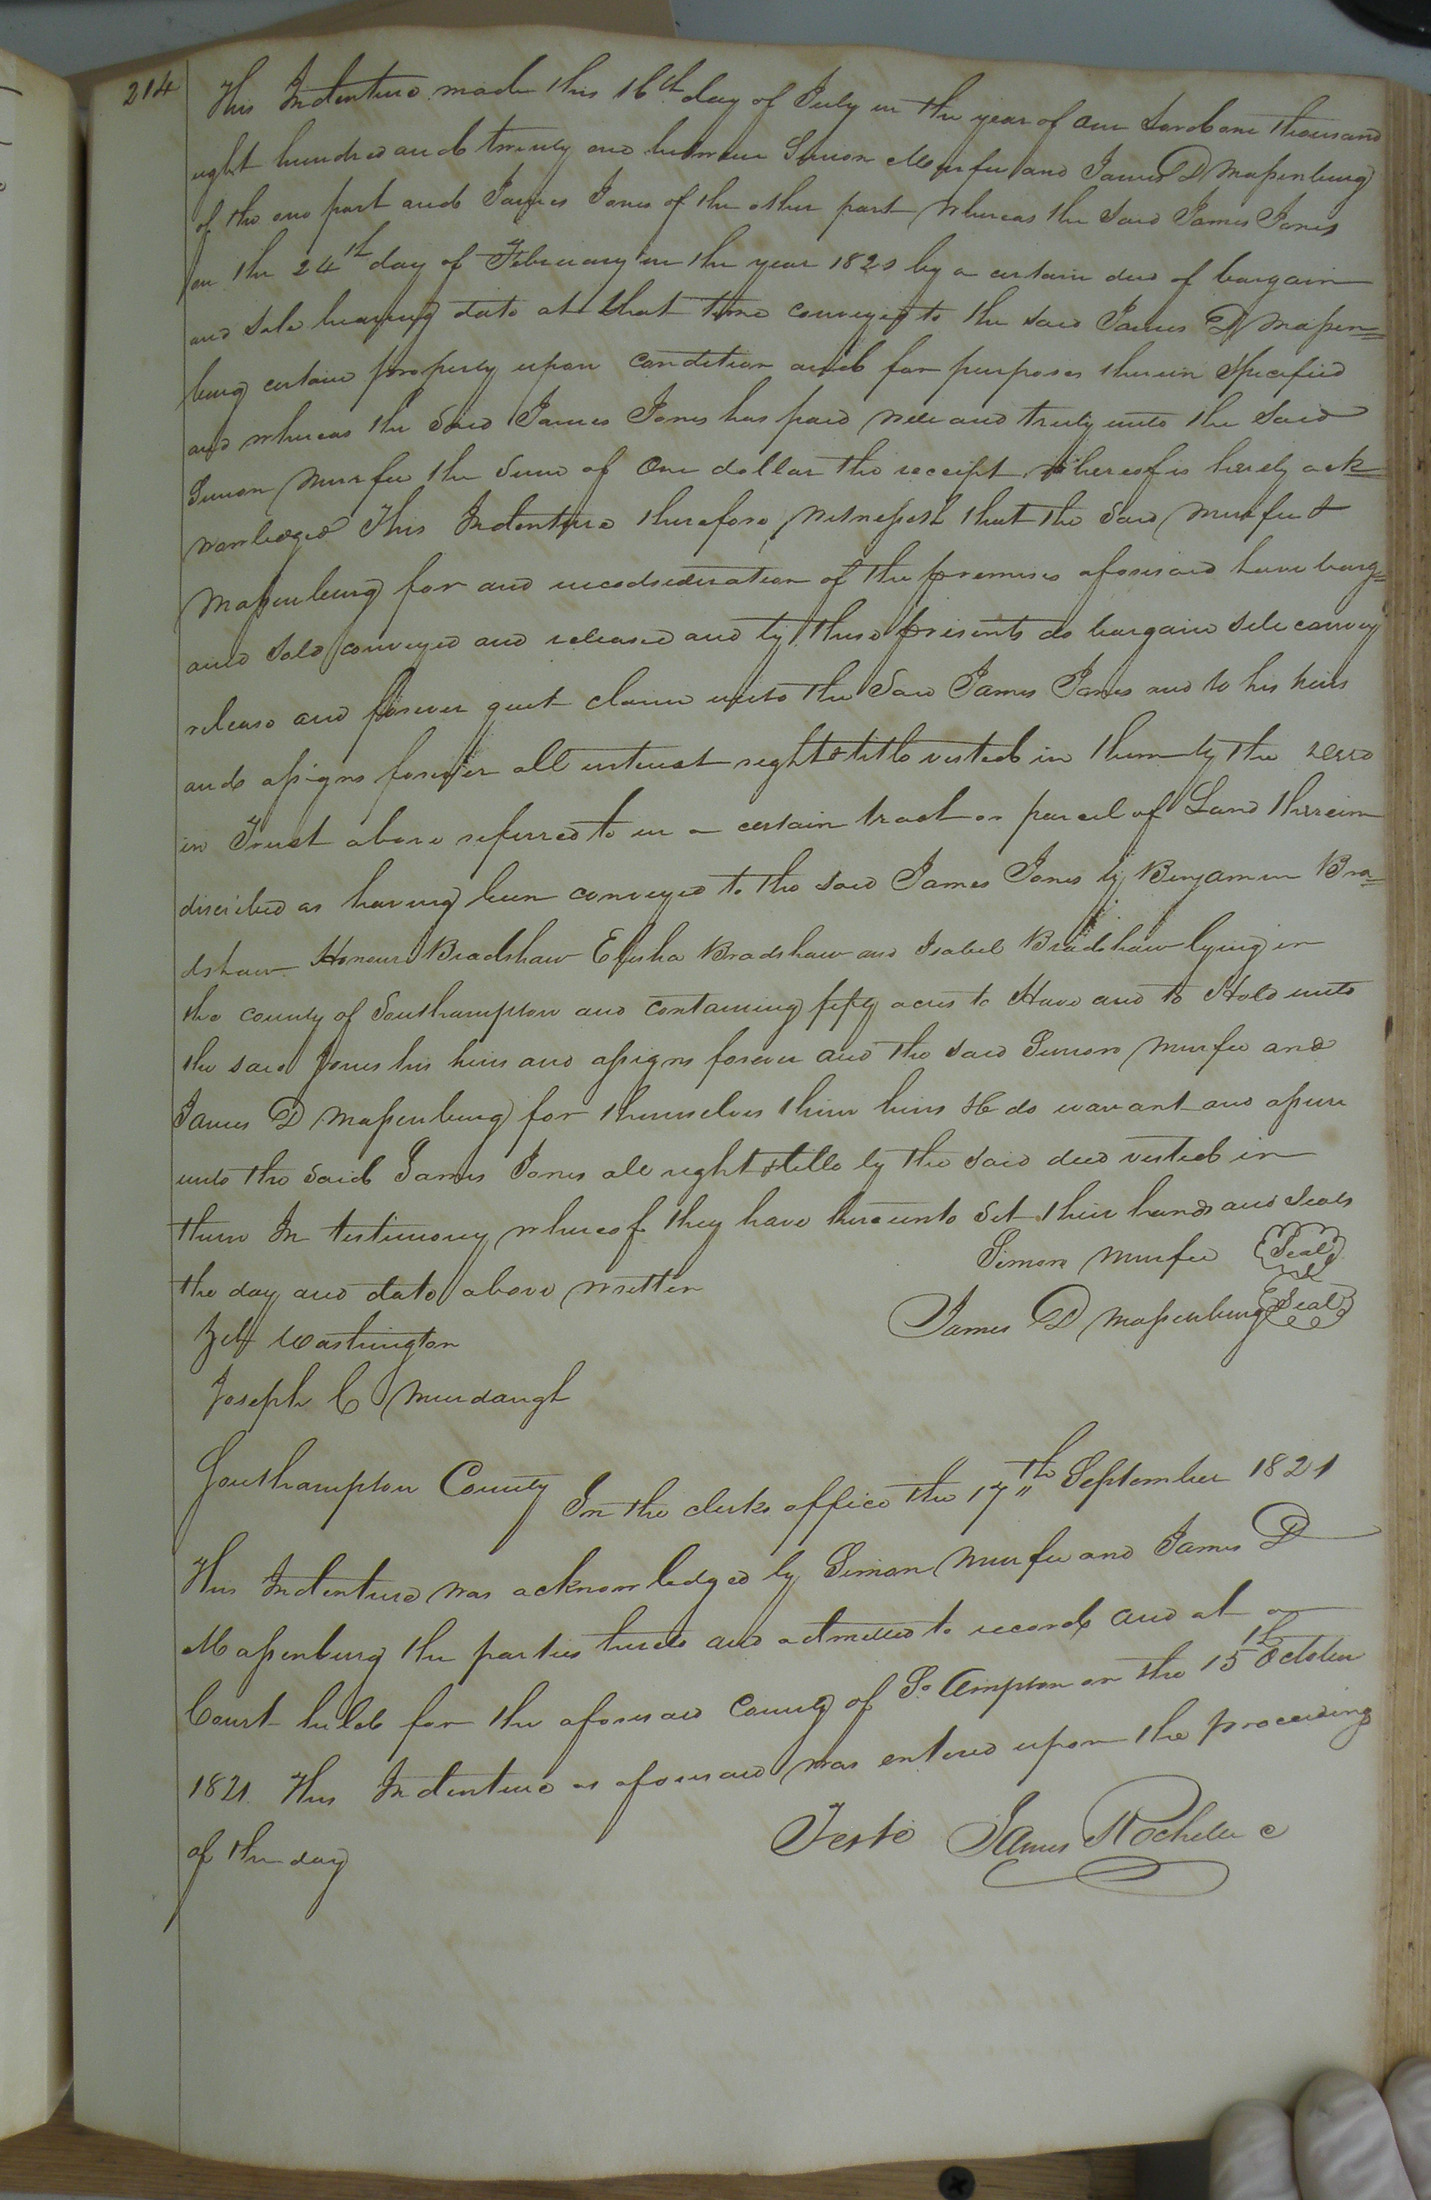 214
This Indenture made this 16th day of July in the year of our Lord one thousand
eight hundred and twenty one between Simon Murfee and James D Massenburg
of the one part and James Jones of the other part Whereas the said James Jones
on the 24th day of February in the year 1820 by a certain deed of bargain
and sale bearing date at that time conveyed to the said James D Massen=
burg certain property upon condition and for purposes therein specified
and whereas the said James Jones has paid well and truly unto the said
Simon Murfee the sum of One dollar the receipt whereof is hereby ack=
nowledged This Indenture therefore Witnesseth that the said Murfee &
Massenburg for and in consideration of the premises aforesaid have barg=
aind sold conveyed and released and by these presents do bargain sell convey
release and forever quit claim unto the said James Jones and to his heirs
and assigns forever all interest right & title vested in them by the deed
in Trust above referred to in a certain tract or parcel of Land therein
discribed as having been conveyed to the said James Jones by Benjamin Bra=
dshaw Honour Bradshaw Elisha Bradshaw and Isabel Bradshaw lying in
the county of Southampton and containing fifty acres to Have and to Hold unto
the said Jones his heirs and assigns forever and the said Simon Murfee and
James D Massenburg for themselves their heirs &c do warrant and assure
unto the said James Jones all right & title by the said deed vested in
them In testimony whereof they have hereunto set their hands and seals
the day and date above written
Simon Murfee Seal
James D Massenburg Seal
Washington
Joseph C Murdaugh
Southampton County In the clerks office the 17th September 1821
This Indenture was acknowledged by Simon Murfee and James D
Massenburg the parties thereto and admitted to record and at a
Court held for the aforesaid County of So Ampton on the 15th October
1821 This Indenture as aforesaid was entered upon the proceeding
of the day
Teste James Rochelle c